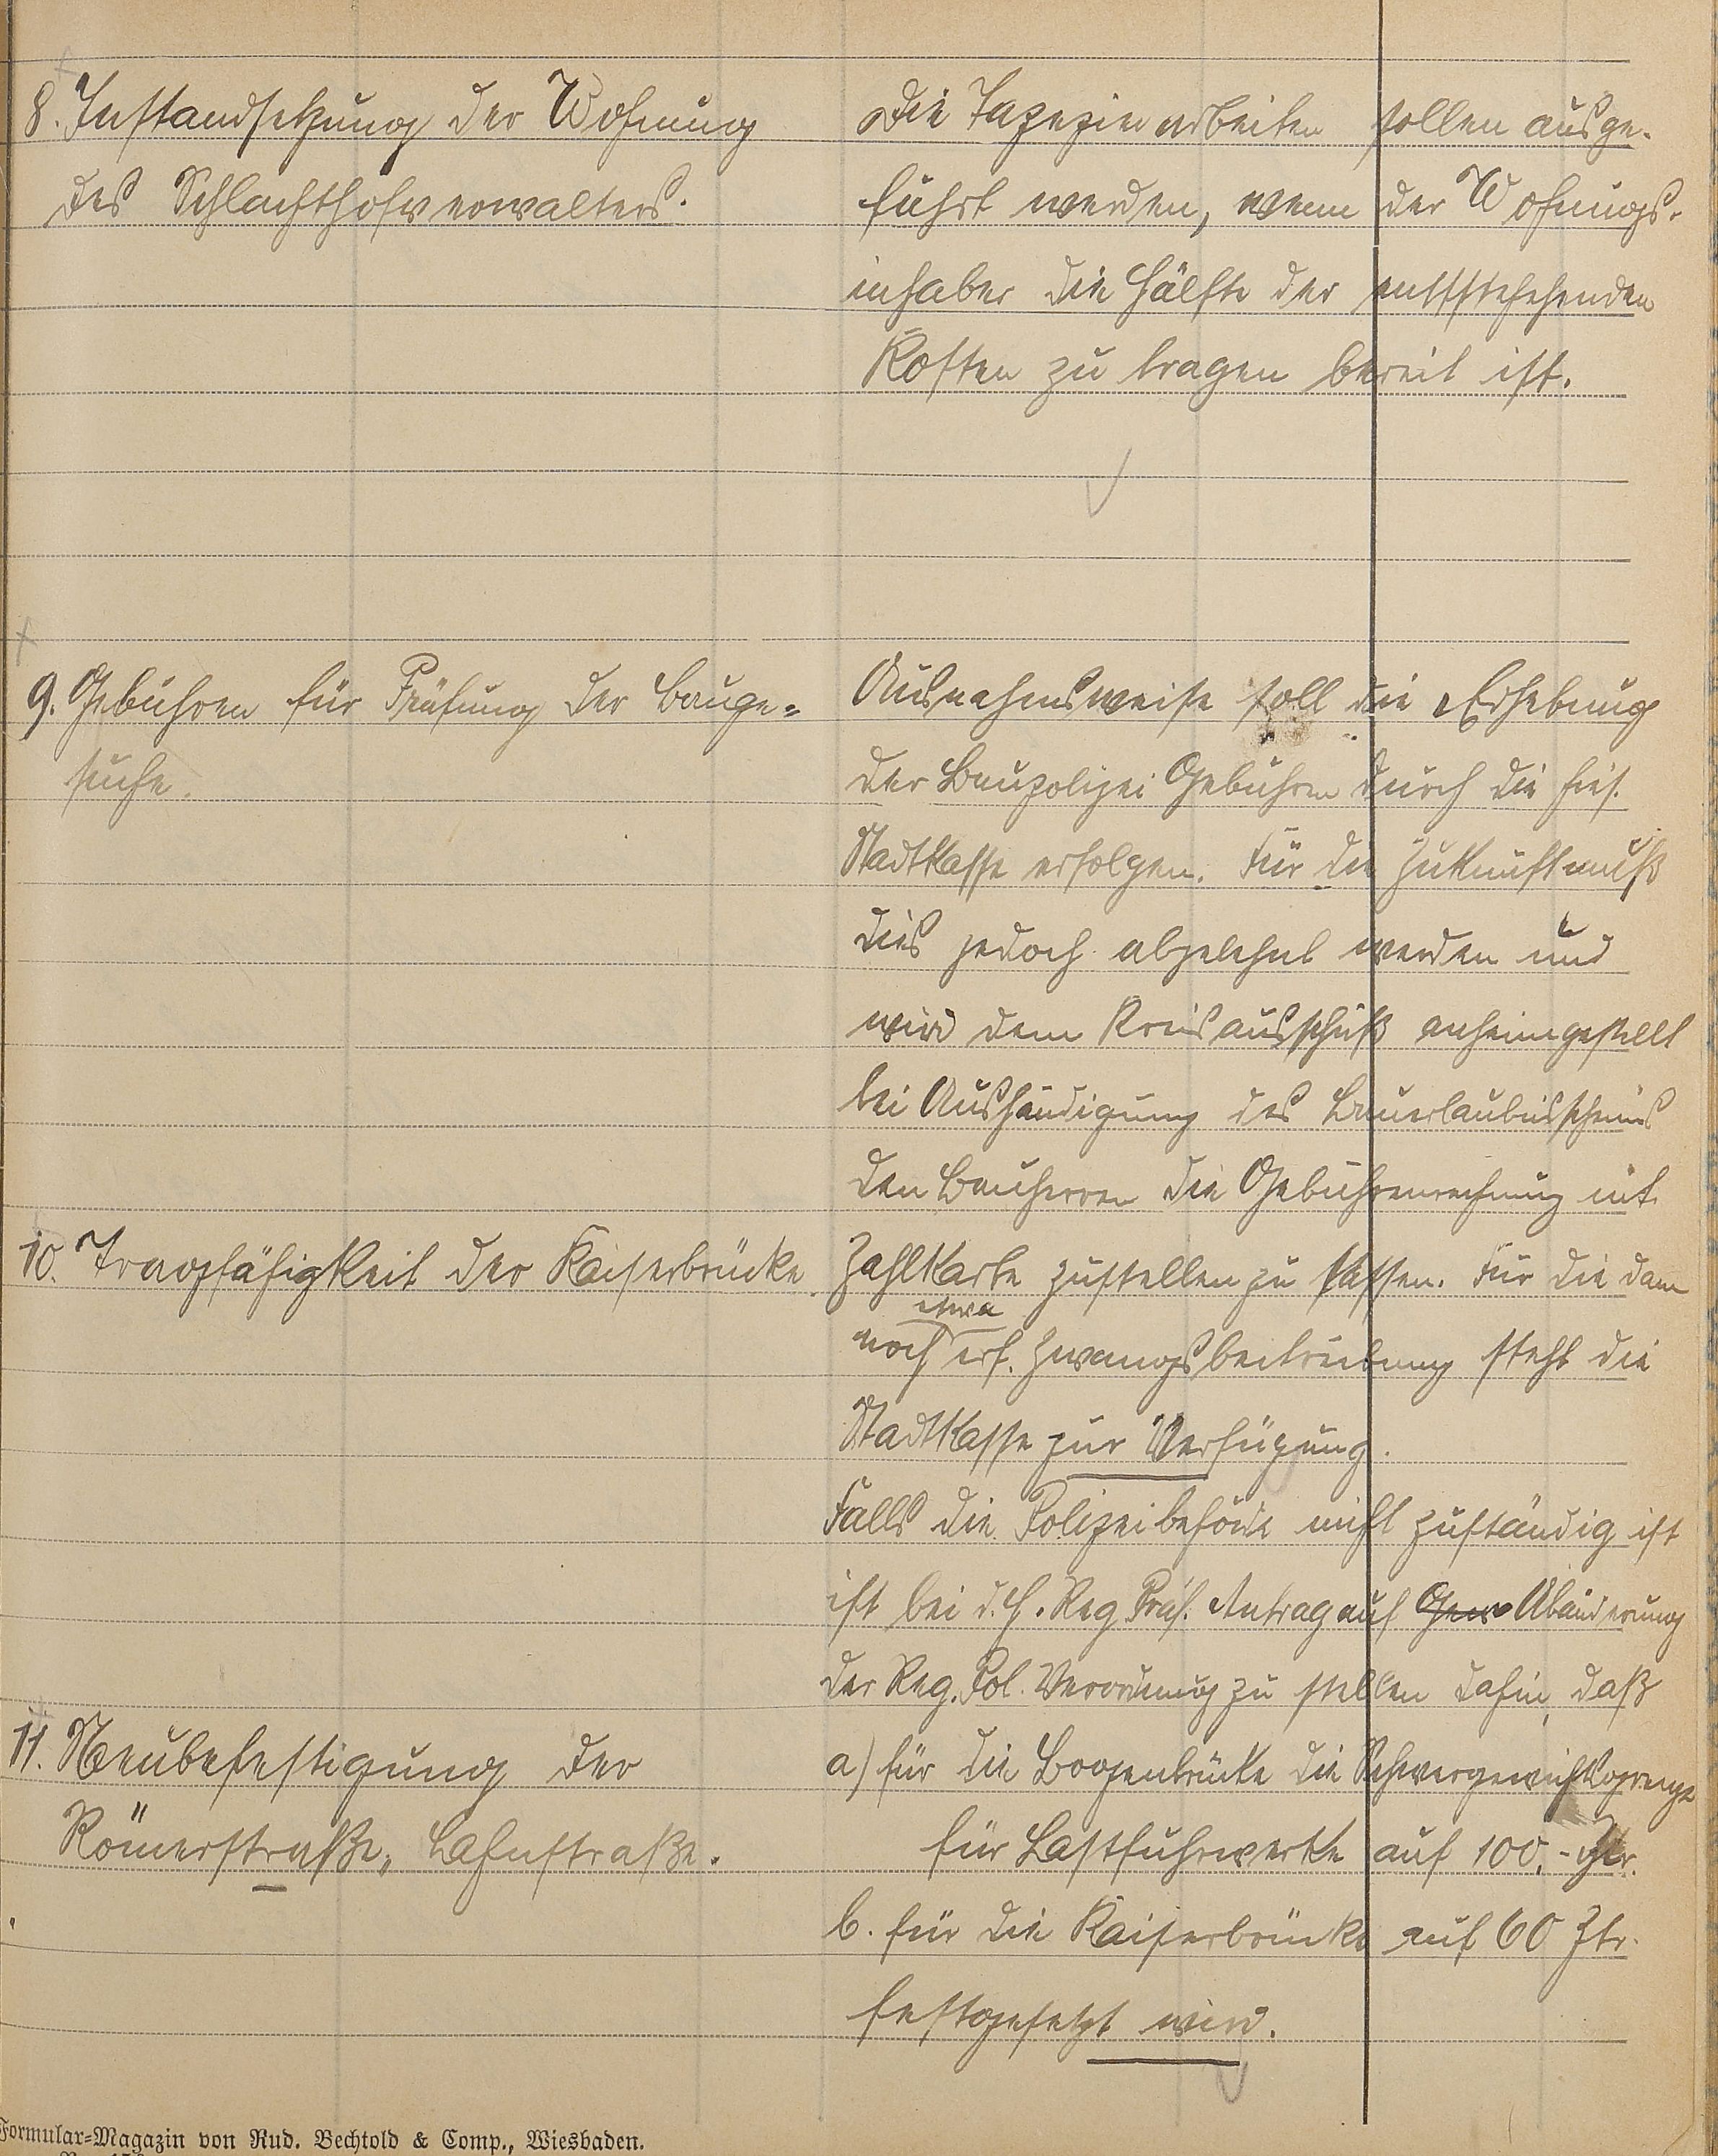 8. Instandsetzung der Wohnung
des Schlachthofverwalters.
Die Tapezierarbeiten sollen ausge-
führt werden, wenn der Wohnungs-
inhaber die Hälfte der entstehenden
Kosten zu tragen bereit ist.
9. Gebühren für Prüfung der Bauge-
suche.
Ausnahmsweise soll die Erhebung
der Baupolizei Gebühren durch die hies.
Stadtkasse erfolgen. Für die Zukunft muß
dies jedoch abgelehnt werden und
wird dem Kreisausschuß anheimgestellt
bei Aushändigung des Bauerlaubnisscheins
den Bauherren die Gebührenrechnung mit
Zahlkarte zustellen zu lassen. Für die dann
noch etwa erf. Zwangsbeitreibung steht die
Stadtkasse zur Verfügung.
10. Tragfähigkeit der Kaiserbrücke.
Falls die Polizeibehörde nicht zuständig ist
ist bei d. H. Reg. Präs. Antrag auf Abänderung
der Reg. Pol. Verordnung zu stellen dahin, daß
a) für die Bogenbrücke die Schwergewichtsgrenze
für Lastfuhrwerke auf 100.- Ztr.
b. für die Kaiserbrücke auf 60 Ztr.
festgesetzt wird.
11. Neubefestigung der
Römerstraße, Lahnstraße.
Formular-Magazin von Rud. Bechtold & Comp., Wiesbaden.